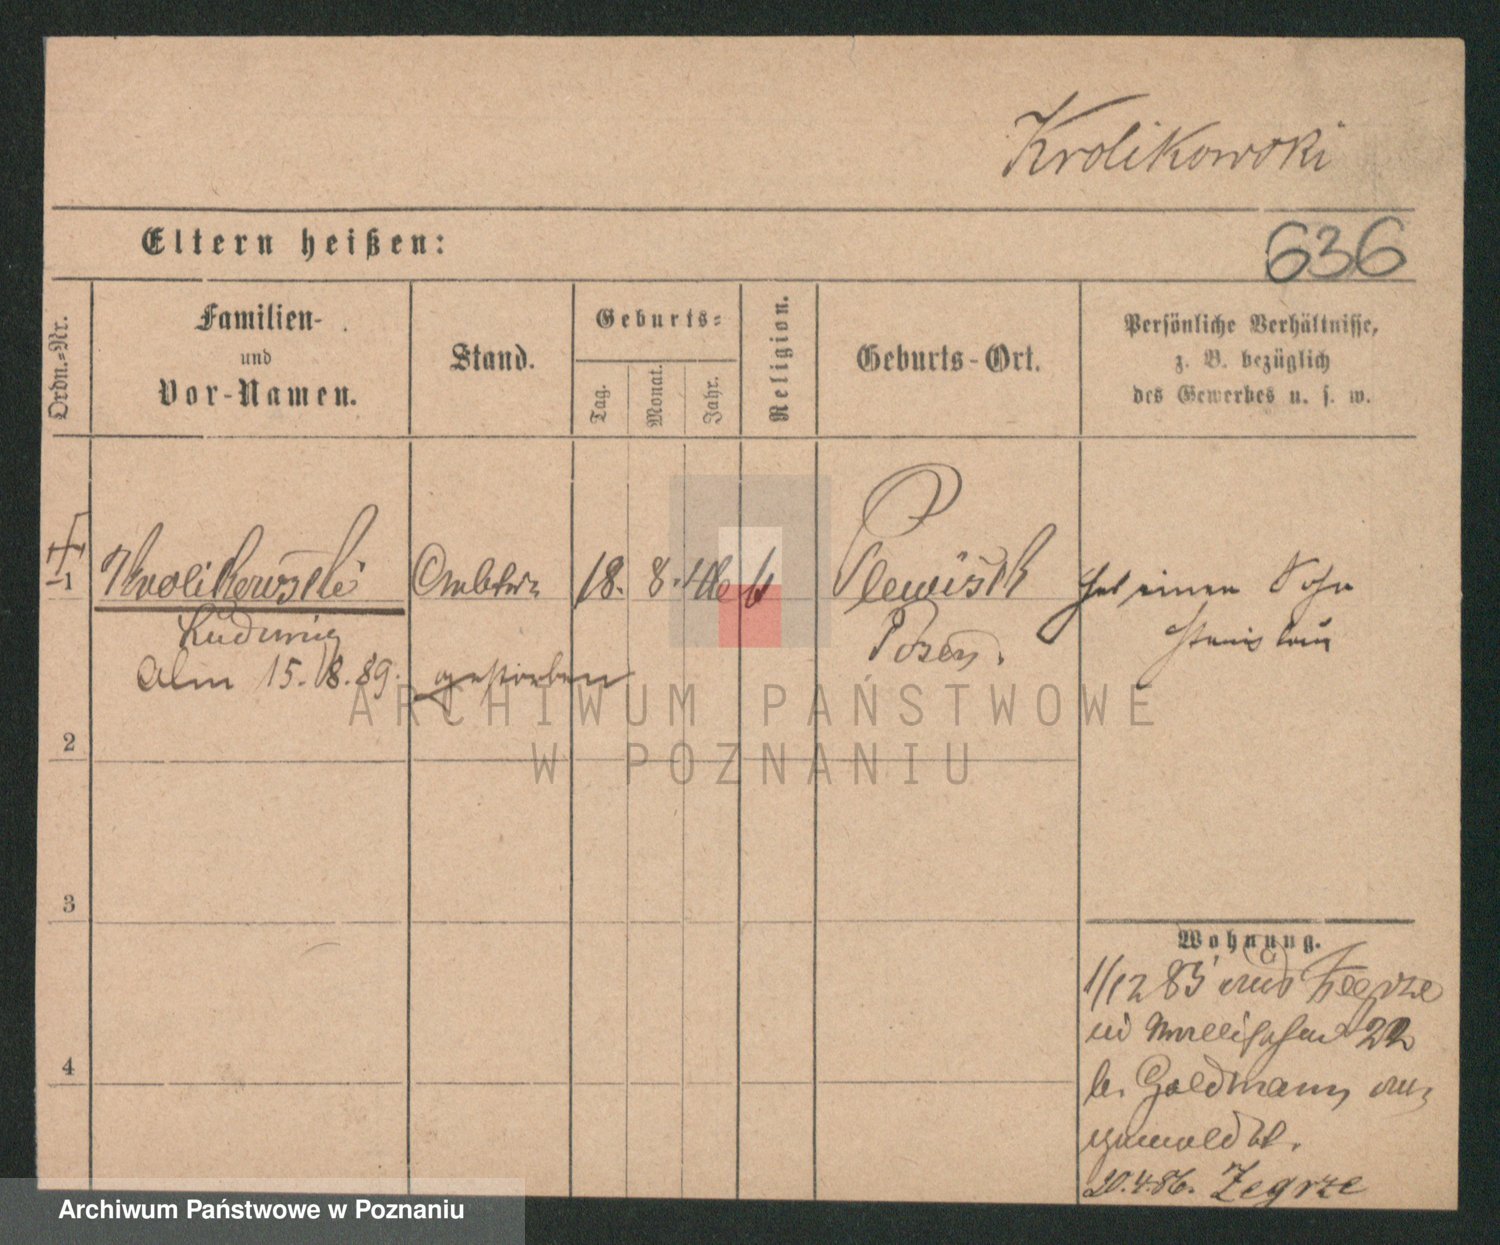 Krolikowski
Eltern heißen:
636
Ordn.-Nr.
Familien-
und
Vor-Namen.
Stand.
Geburts-
Tag.
Monat.
Jahr.
Religion.
Geburts-Ort.
Persönliche Verhältnisse,
z. B. bezüglich
des Gewerbes u. s. w.
1
Krolikowski
18. 8.
Plewisk
hat einen Sohn
Ludwig
Posen.
Stanislaus
am 15. 8. 89. gestorben
ARCHIWUM PAŃSTWOWE
W POZNANIU
2
3
4
Wohnung.
1/12 83 aus Zegrze
22
b. Goldmann
20.4.86. Zegrze
Archiwum Państwowe w Poznaniu